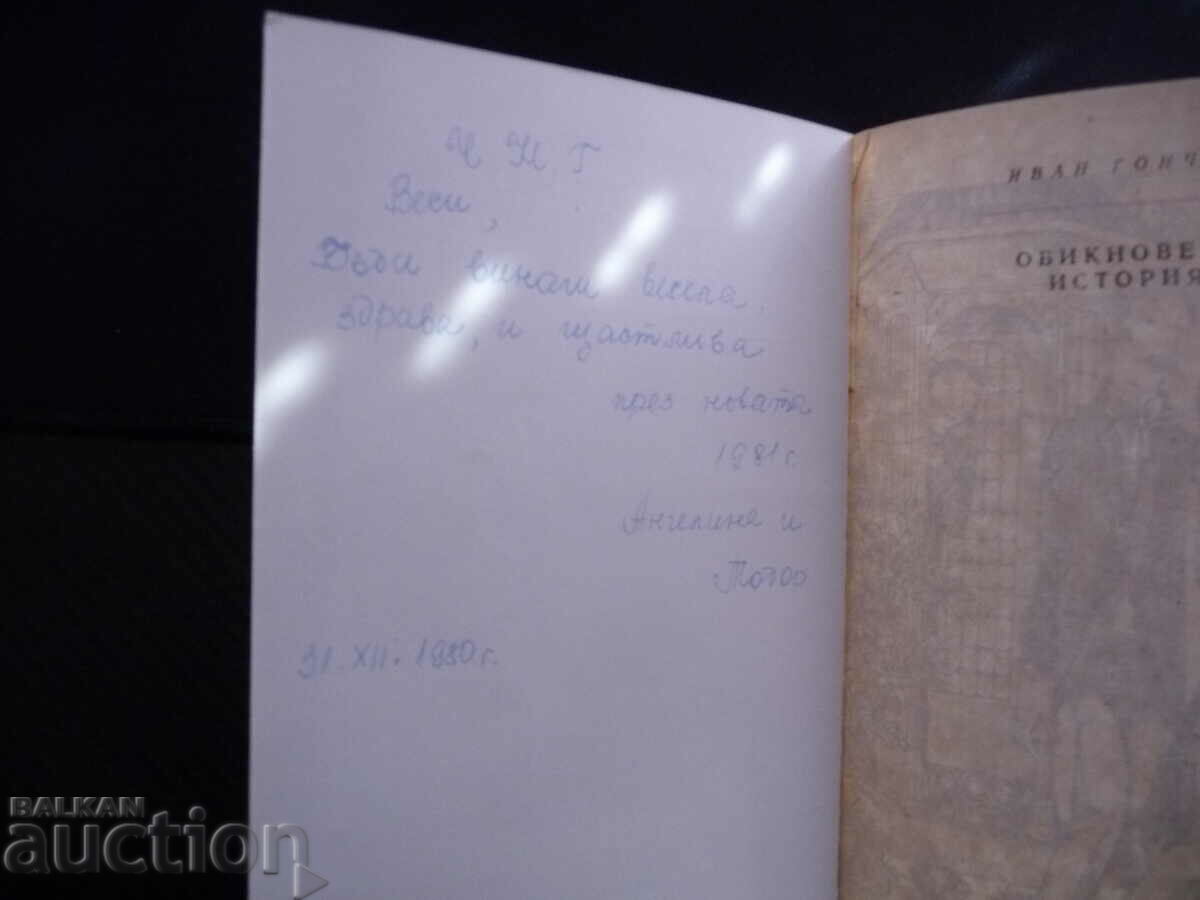 Ч Н Г
Веси,
Бъди винаги весела.
здрава, и щастлива
през новата
1981 г.
Ангелина и
31. XII. 1980 г.
ИВАН ГОНЧ
ОБИКНОВЕ
ИСТОРИЯ
BALKAN
auction